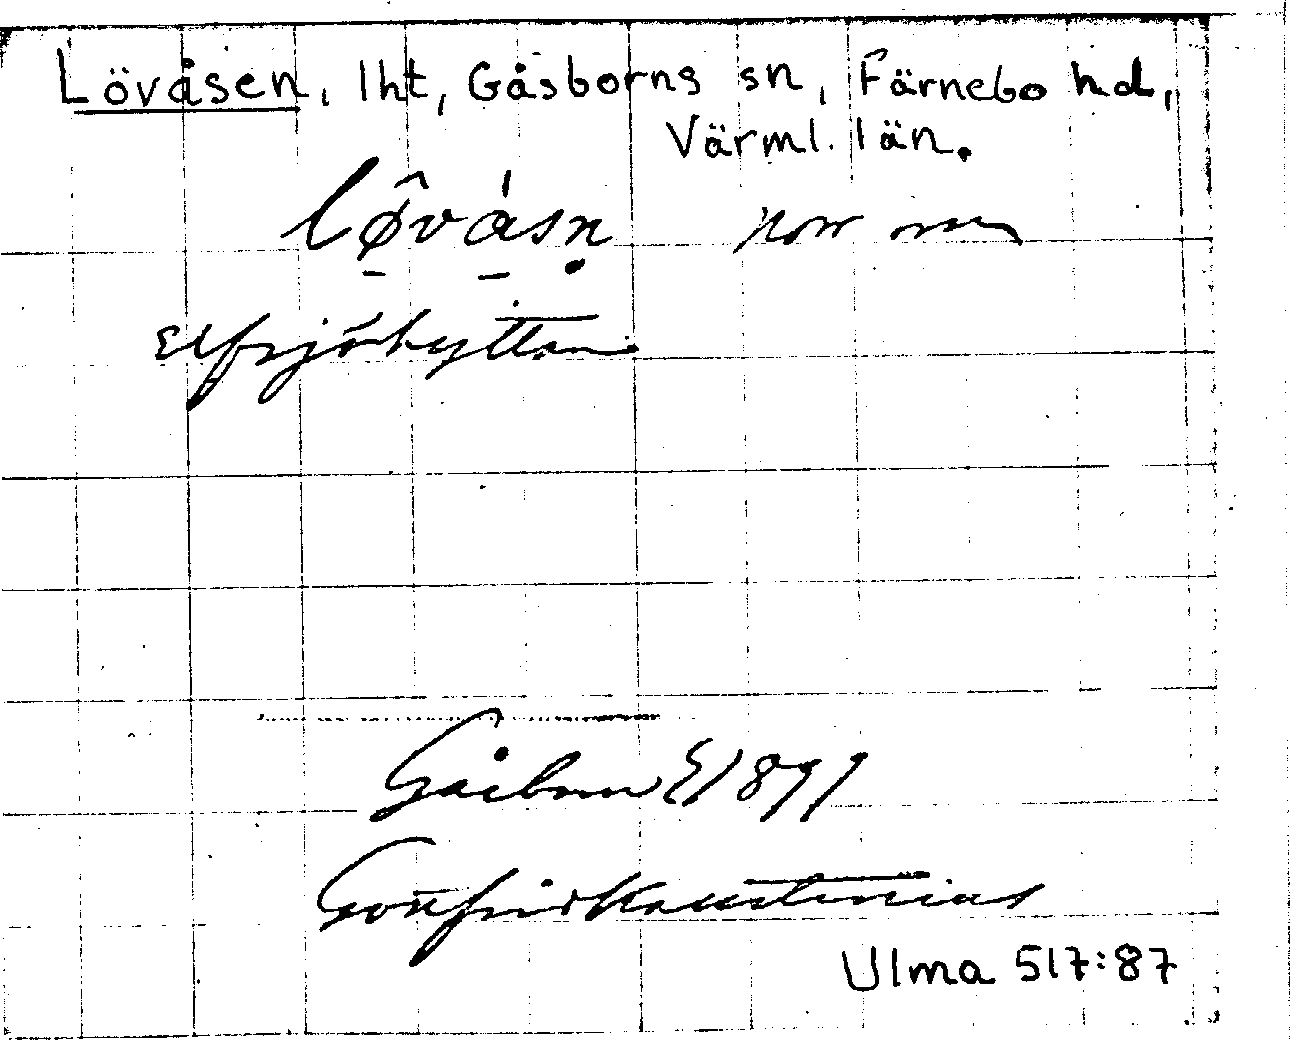 Lövåsen, lht, Gåsborns sn, Färnebo hd,
Värml. län.
lø̂vásṇ norr om
Elfsjöhyttan
Gåsborn 1899
Gottfrid Kallstenius
Ulma 517:87